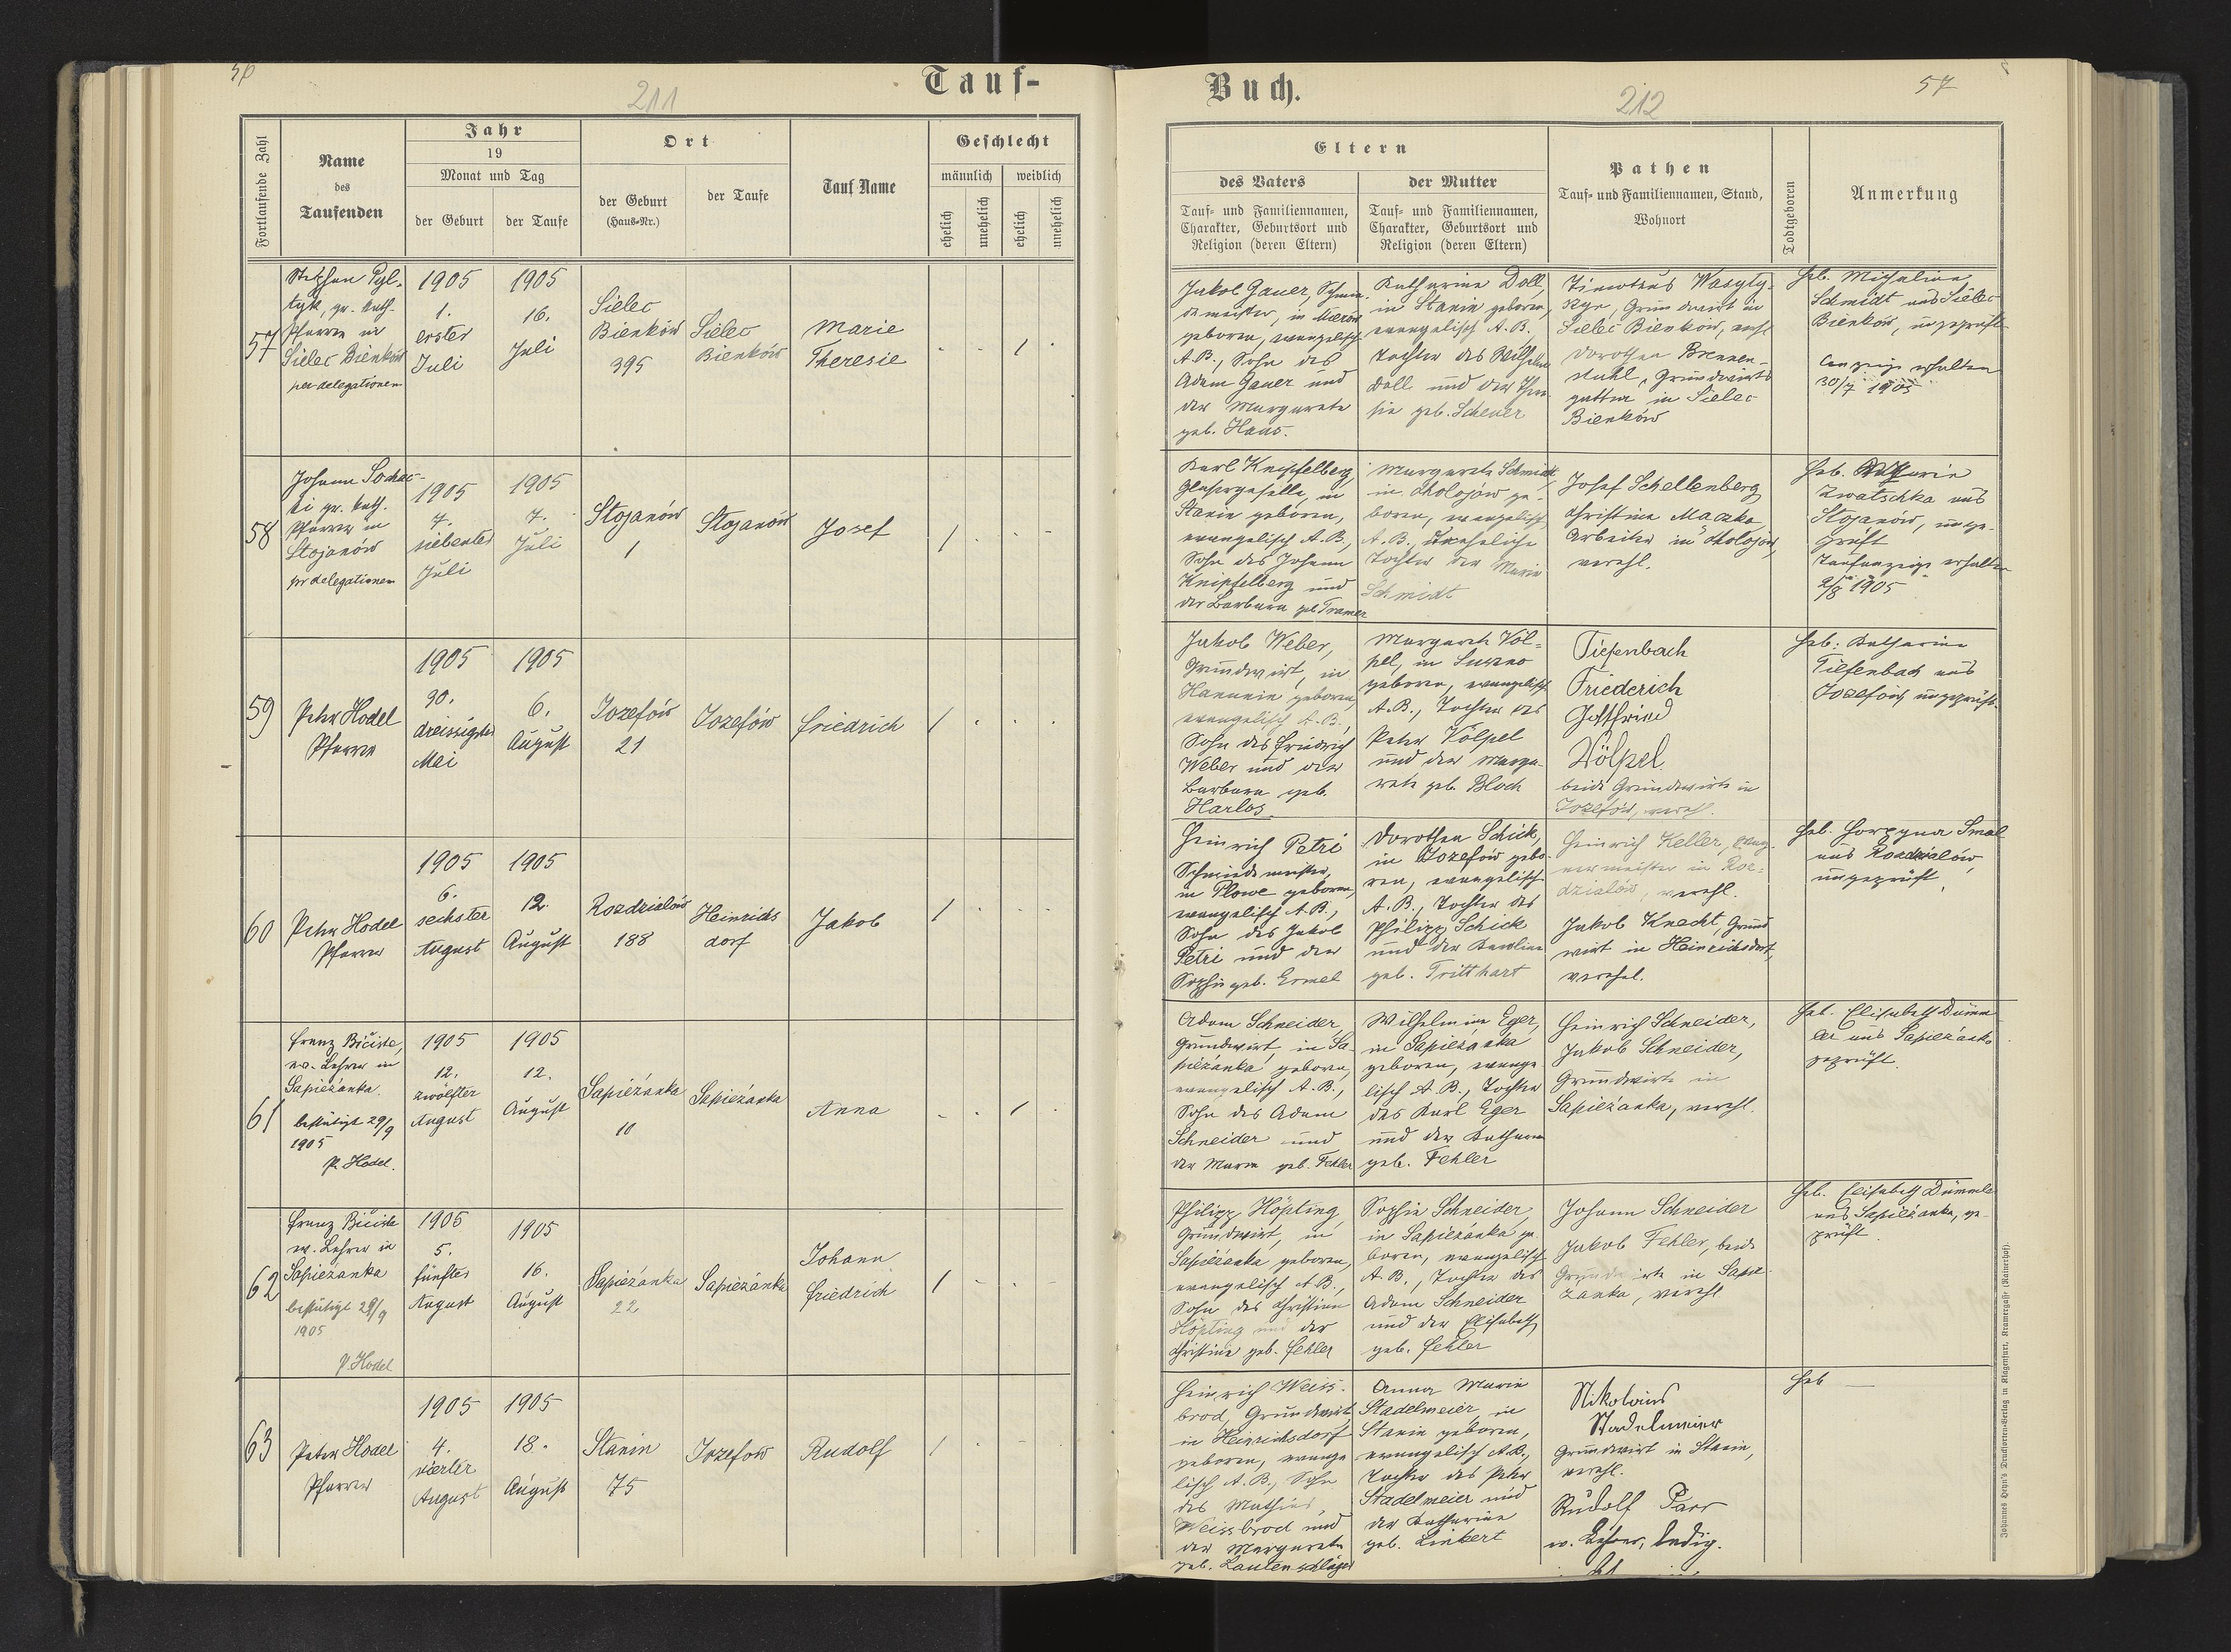 56
211
Tauf-
Fortlaufende Zahl
Name
des
Taufenden
Jahr
19
Monat und Tag
der Geburt
der Taufe
Ort
der Geburt
(Haus-Nr.)
der Taufe
Tauf Name
Geschlecht
männlich
weiblich
ehelich
unehelich
ehelich
unehelich
57
Stephan Pyl-
tyk, gr. kath.
Pfarrer in
Sielec Bieńków
per delegationem
1905
1.
erster
Juli
1905
16.
Juli
Sielec
Bieńków
395
Sielec
Bieńków
Marie
Theresie
58
Johann Sochac-
ki gr. kath.
Pfarrer in
Stojanów
pr delegationem
1905
7.
siebenter
Juli
1905
7.
Juli
Stojanów
1
Stojanów
Josef
59
Peter Hodel
Pfarrer
1905
30.
dreissigster
Mai
1905
6.
August
Jozefów
21
Jozefów
Friedrich
60
Peter Hodel
Pfarrer
1905
6.
sechster
August
1905
12.
August
Rozdzialów
188
Heinrichs
dorf
Jakob
61
Franz
ev. Lehrer in
Sapieżanka.
bestätigt 29/9
1905
P. Hodel.
1905
12.
zwölfter
August
1905
12.
August
Sapieżanka
10
Sapieżanka
Anna
62
Franz
ev. Lehrer in
Sapieżanka
bestätigt 29/9
1905
P. Hodel
1905
5.
fünfter
August
1905
16.
August
Sapieżanka
22
Sapieżanka
Johann
Friedrich
63
Peter Hodel
Pfarrer
1905
4.
vierter
August
1905
18.
August
Stanin
75
Jozefow
Rudolf
Buch.
212
57
Eltern
des Vaters
Tauf- und Familiennamen,
Charakter, Geburtsort und
Religion (deren Eltern)
der Mutter
Tauf- und Familiennamen,
Charakter, Geburtsort und
Religion (deren Eltern)
Pathen
Tauf- und Familiennamen, Stand,
Wohnort
Todtgeboren
Anmerkung
Jakob Gauer, Schmie-
demeister, in
geboren, evangelisch
A.B., Sohn des
Adam Gauer und
der Margarete
geb. Haas.
Katharina Doll,
in Stanin geboren,
evangelisch A.B.
Tochter des Wilhelm
Doll und der There-
sie geb. Scheuer
Timotheus Wasyly-
Grundwirt in
Sielec Bieńków, verhl
Dorothea Brenzen-
stuhl, Grundwirts
gattin in Sielec
Bieńków
Heb. Michalina
Schmidt aus Sielec
Bieńków, ungeprüft
Anzeige erhalten
30/7 1905
Karl Knipfelberg,
Glasergeselle, in
Stanin geboren,
evangelisch A.B.,
Sohn des Johann
Knipfelberg und
der Barbara geb. Tramer
Margarete Schmidt
in Cholojów ge-
boren, evangelisch
A.B., uneheliche
Tochter der Marie
Schmidt
Josef Schellenberg
Christine Maczko
Arbeiter in Cholojów,
verehl.
Heb. Katharine
Zwatschka aus
Stojanów, unge-
prüft
Taufanzeige erhalten
2/8 1905
Jakob Weber,
Grundwirt, in
Hanunin geboren,
evangelisch A.B.,
Sohn des Friedrich
Weber und der
Barbara geb.
Harlos
Margarete Völ-
pel, in Suszno
geboren, evangelisch
A.B., Tochter des
Peter Völpel
und der Marga-
rete geb. Bloch
Tiefenbach
Friederich
Gottfried
Völpel
beide Grundwirte in
Jozefów, verehl.
Heb: Katharine
Tiefenbach aus
Jozefów, ungeprüft.
Heinrich Petri
Schmiedemeister,
in Plowe geboren,
evangelisch A.B.,
Sohn des Jakob
Petri und der
Sophie geb. Ermel
Dorothea Schick,
in Jozefów gebo-
ren, evangelisch
A.B., Tochter des
Philipp Schick
und der Karoline
geb. Tritthart
Heinrich Keller,
nermeister in Roz-
dzialów, verehl.
Jakob Knecht, Grund
wirt in Heinrichsdorf,
verehel.
Heb. Horpyna Smal
aus Rozdzialów,
ungeprüft
Adam Schneider,
Grundwirt, in Sa-
pieżanka geboren,
evangelisch A.B.,
Sohn des Adam
Schneider und
der Marie geb. Fehler
Wilhelmine Eger,
in Sapieżanka
geboren, evange-
lisch A.B., Tochter
des Karl Eger
und der Katharine
geb. Fehler
Heinrich Schneider,
Jakob Schneider,
Grundwirte in
Sapieżanka, verehl.
Heb. Elisabeth Dümm
ler aus Sapieżanka
geprüft.
Philipp Höpting
Grundwirt, in
Sapieżanka geboren,
evangelisch A.B.,
Sohn des Christian
Höpting und der
Christine geb. Fehler
Sophie Schneider
in Sapieżanka ge-
boren, evangelisch
A.B., Tochter des
Adam Schneider
und der Elisabeth
geb. Fehler
Johann Schneider
Jakob Fehler, beide
Grundwirte in Sapie-
żanka, verehl
Heb. Elisabeth Dümmle
aus Sapieżanka, ge-
prüft
Heinrich Weiss-
brod, Grundwirt
in Heinrichsdorf
geboren, evange
lisch A.B., Sohn
des Mathias
Weissbrod und
der Margarete
geb. Lautenschläger
Anna Marie
Stadelmeier, in
Stanin geboren,
evangelisch A.B.,
Tochter des Peter
Stadelmeier und
der Katharine
geb. Linkert
Nikolaus
Stadelmeier
Grundwirt in Stanin,
verehl.
Rudolf Parr
ev. Lehrer, ledig.
Heb —
Johannes Heyn's Drucksorten-Verlag in Klagenfurt, Kramergasse (Rainerhof).